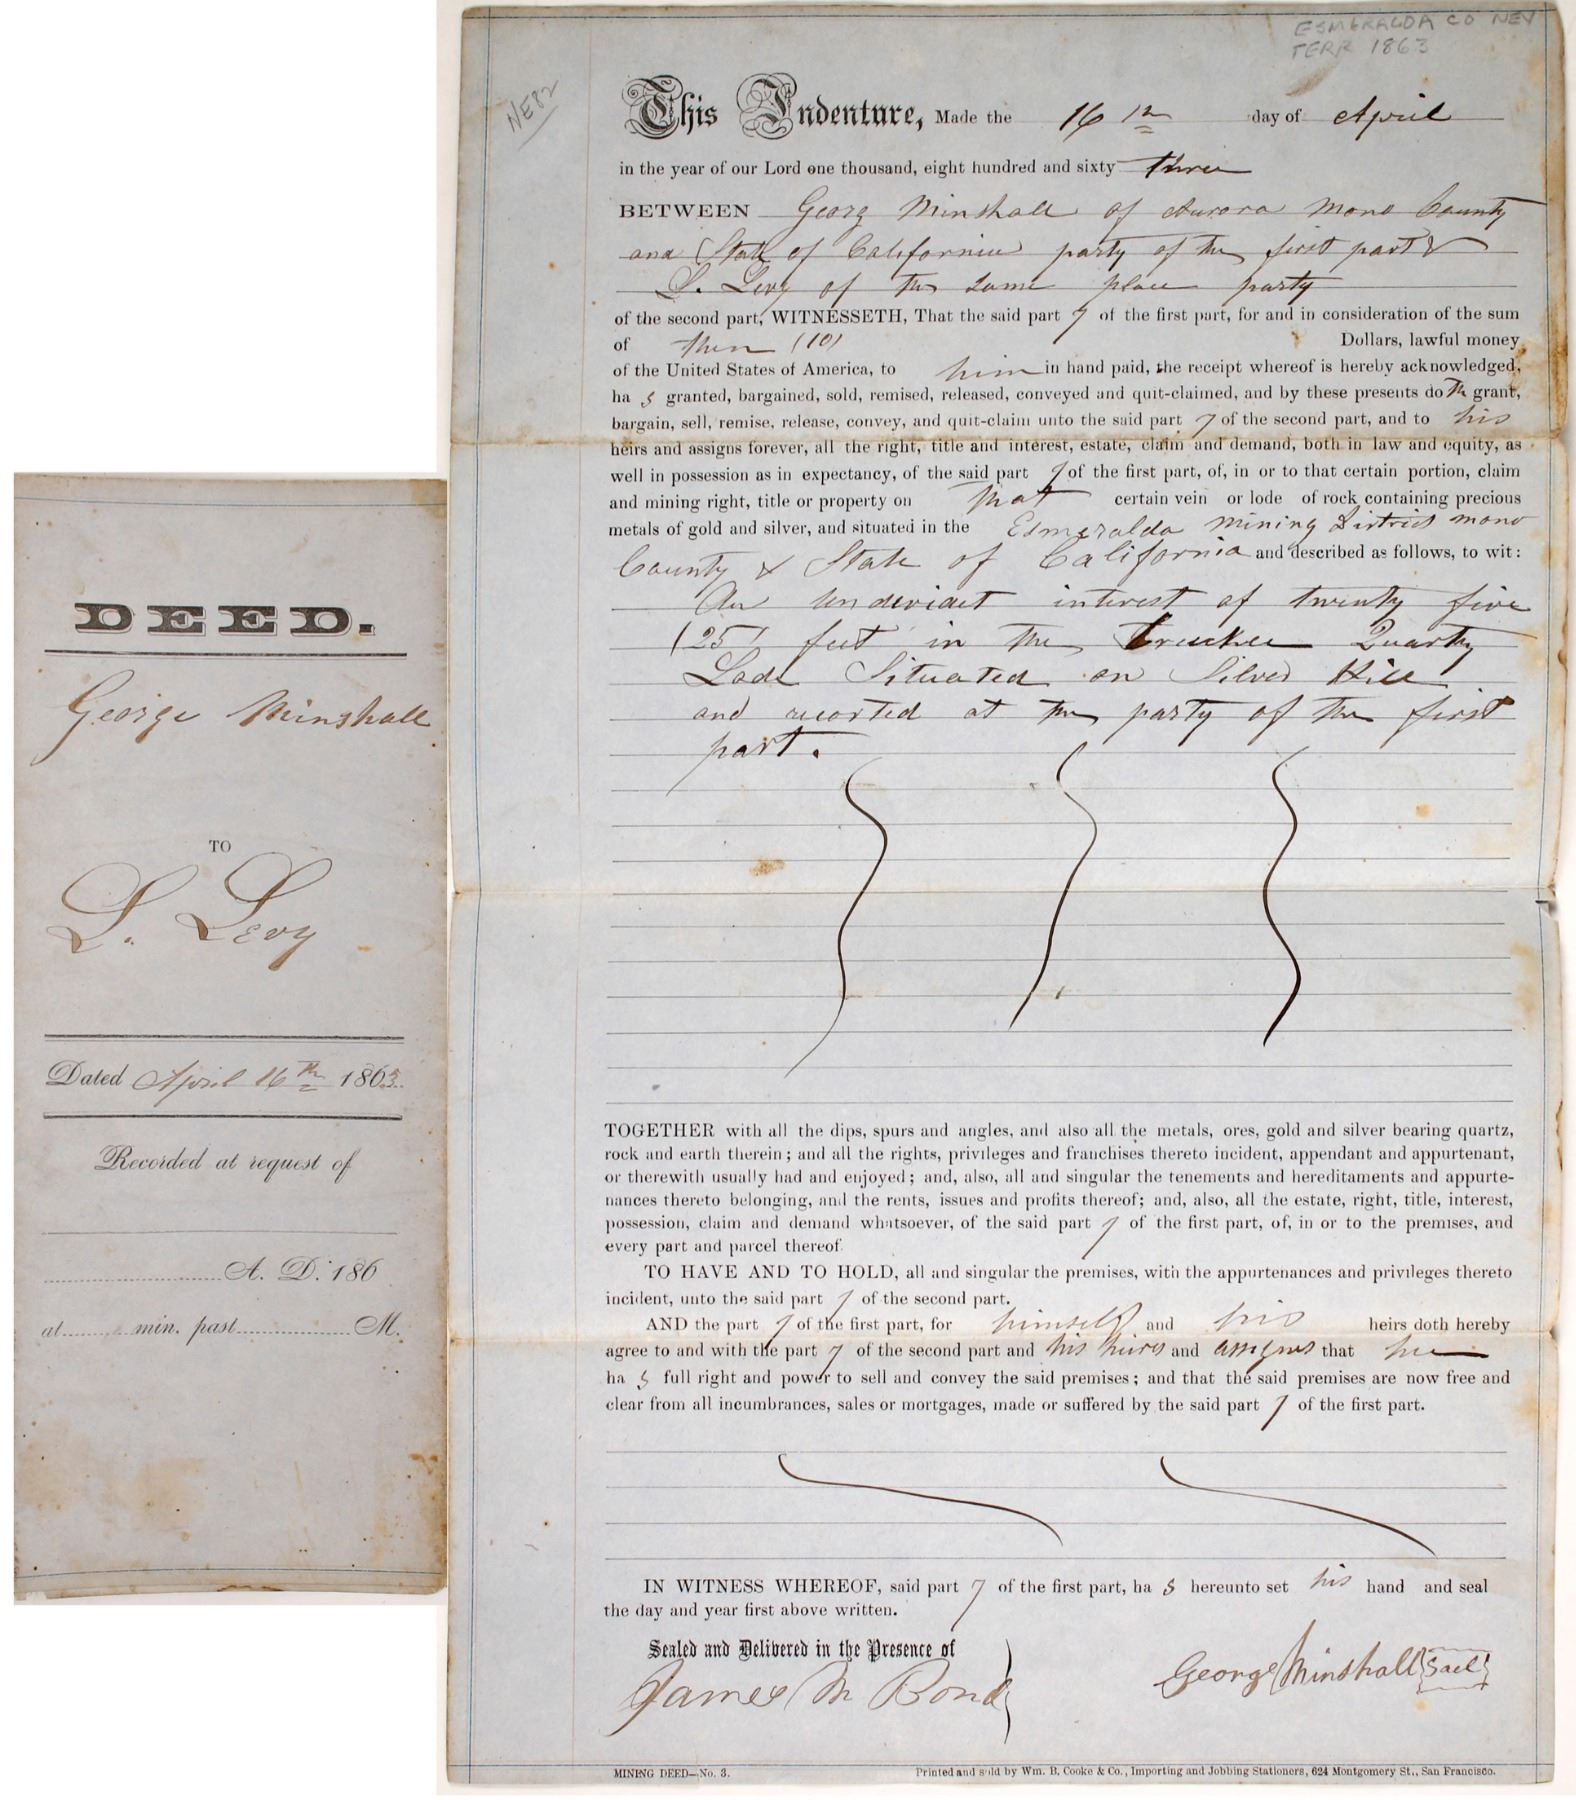 DEED.
George Minshall
TO
L. Levy
Dated April 16th 1863.
Recorded at request of
A. D. 186
at min. past M.
ESMERALDA CO NEV
TERR 1863
NE82
This Indenture, Made the 16th day of April
in the year of our Lord one thousand, eight hundred and sixty three
BETWEEN Georg Minshall of Aurora Mono County
and State of California party of the first part &
L. Levy of the same place party
of the second part, WITNESSETH, That the said part y of the first part, for and in consideration of the sum
of then (10) Dollars, lawful money
of the United States of America, to him in hand paid, the receipt whereof is hereby acknowledged,
ha s granted, bargained, sold, remised, released, conveyed and quit-claimed, and by these presents do th grant,
bargain, sell, remise, release, convey, and quit-claim unto the said part y of the second part, and to his
heirs and assigns forever, all the right, title and interest, estate, claim and demand, both in law and equity, as
well in possession as in expectancy, of the said part y of the first part, of, in or to that certain portion, claim
and mining right, title or property on that certain vein or lode of rock containing precious
metals of gold and silver, and situated in the Esmeralda Mining District Mono
County & State of California and described as follows, to wit:
An undevidet interest of twenty five
(25) feet in the Truckee Quartz
Lode Situated on Silver Hill
and recorted at the party of the first
part.
TOGETHER with all the dips, spurs and angles, and also all the metals, ores, gold and silver bearing quartz,
rock and earth therein; and all the rights, privileges and franchises thereto incident, appendant and appurtenant,
or therewith usually had and enjoyed; and, also, all and singular the tenements and hereditaments and appurte-
nances thereto belonging, and the rents, issues and profits thereof; and, also, all the estate, right, title, interest,
possession, claim and demand whatsoever, of the said part y of the first part, of, in or to the premises, and
every part and parcel thereof.
TO HAVE AND TO HOLD, all and singular the premises, with the appurtenances and privileges thereto
incident, unto the said part y of the second part.
AND the part y of the first part, for himself and his heirs doth hereby
agree to and with the part y of the second part and his heirs and assigns that he
ha s full right and power to sell and convey the said premises; and that the said premises are now free and
clear from all incumbrances, sales or mortgages, made or suffered by the said part y of the first part.
IN WITNESS WHEREOF, said part y of the first part, ha s hereunto set his hand and seal
the day and year first above written.
Sealed and Delivered in the Presence of
James M Bond
George Minshall {Sael}
MINING DEED—No. 3.
Printed and sold by Wm. B. Cooke & Co., Importing and Jobbing Stationers, 624 Montgomery St., San Francisco.